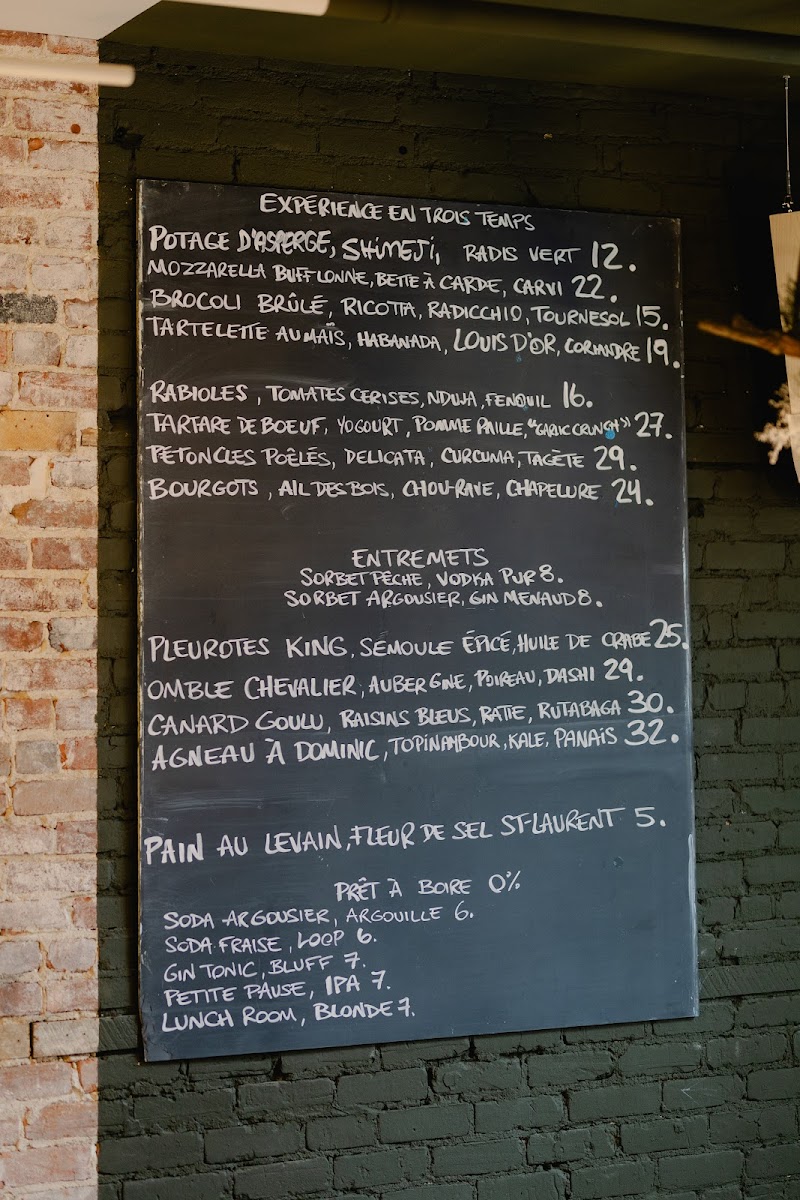 EXPÉRIENCE EN TROIS TEMPS
POTAGE D'ASPERGE, SHIMEJI, RADIS VERT 12.
MOZZARELLA BUFFLONNE, BETTE À CARDE, CARVI 22.
BROCOLI BRÛLÉ, RICOTTA, RADICCHIO, TOURNESOL 15.
TARTELETTE AU MAÏS, HABANADA, LOUIS D'OR, CORIANDRE 19.
RABIOLES, TOMATES CERISES, NDUJA, FENOUIL 16.
TARTARE DE BOEUF, YOGOURT, POMME PAILLE, "GARLIC CRUNCH" 27.
PÉTONCLES POÊLÉS, DELICATA, CURCUMA, TAGÈTE 29.
BOURGOTS, AIL DES BOIS, CHOU-RAVE, CHAPELURE 24.
ENTREMETS
SORBET PÊCHE, VODKA PUR 8.
SORBET ARGOUSIER, GIN MENAUD 8.
PLEUROTES KING, SEMOULE ÉPICÉ, HUILE DE CRABE 25.
OMBLE CHEVALIER, AUBERGINE, POIREAU, DASHI 29.
CANARD GOULU, RAISINS BLEUS, RATTE, RUTABAGA 30.
AGNEAU À DOMINIC, TOPINAMBOUR, KALE, PANAIS 32.
PAIN AU LEVAIN, FLEUR DE SEL ST-LAURENT 5.
PRÊT À BOIRE 0%
SODA ARGOUSIER, ARGOUILLE 6.
SODA FRAISE, LOOP 6.
GIN TONIC, BLUFF 7.
PETITE PAUSE, IPA 7.
LUNCH ROOM, BLONDE 7.